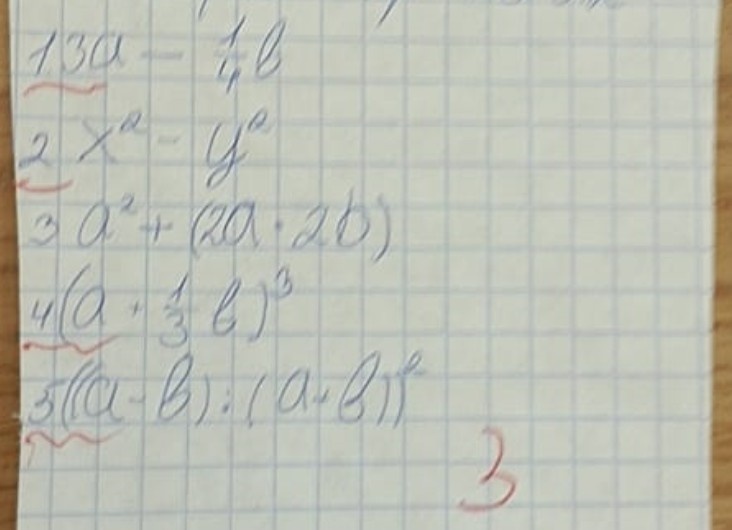 13a - 1/4 в
2 x² - y²
3 a² + (2a · 2b)
4(a · 1/3 в)³
5((a - в) : (a · в))²
3